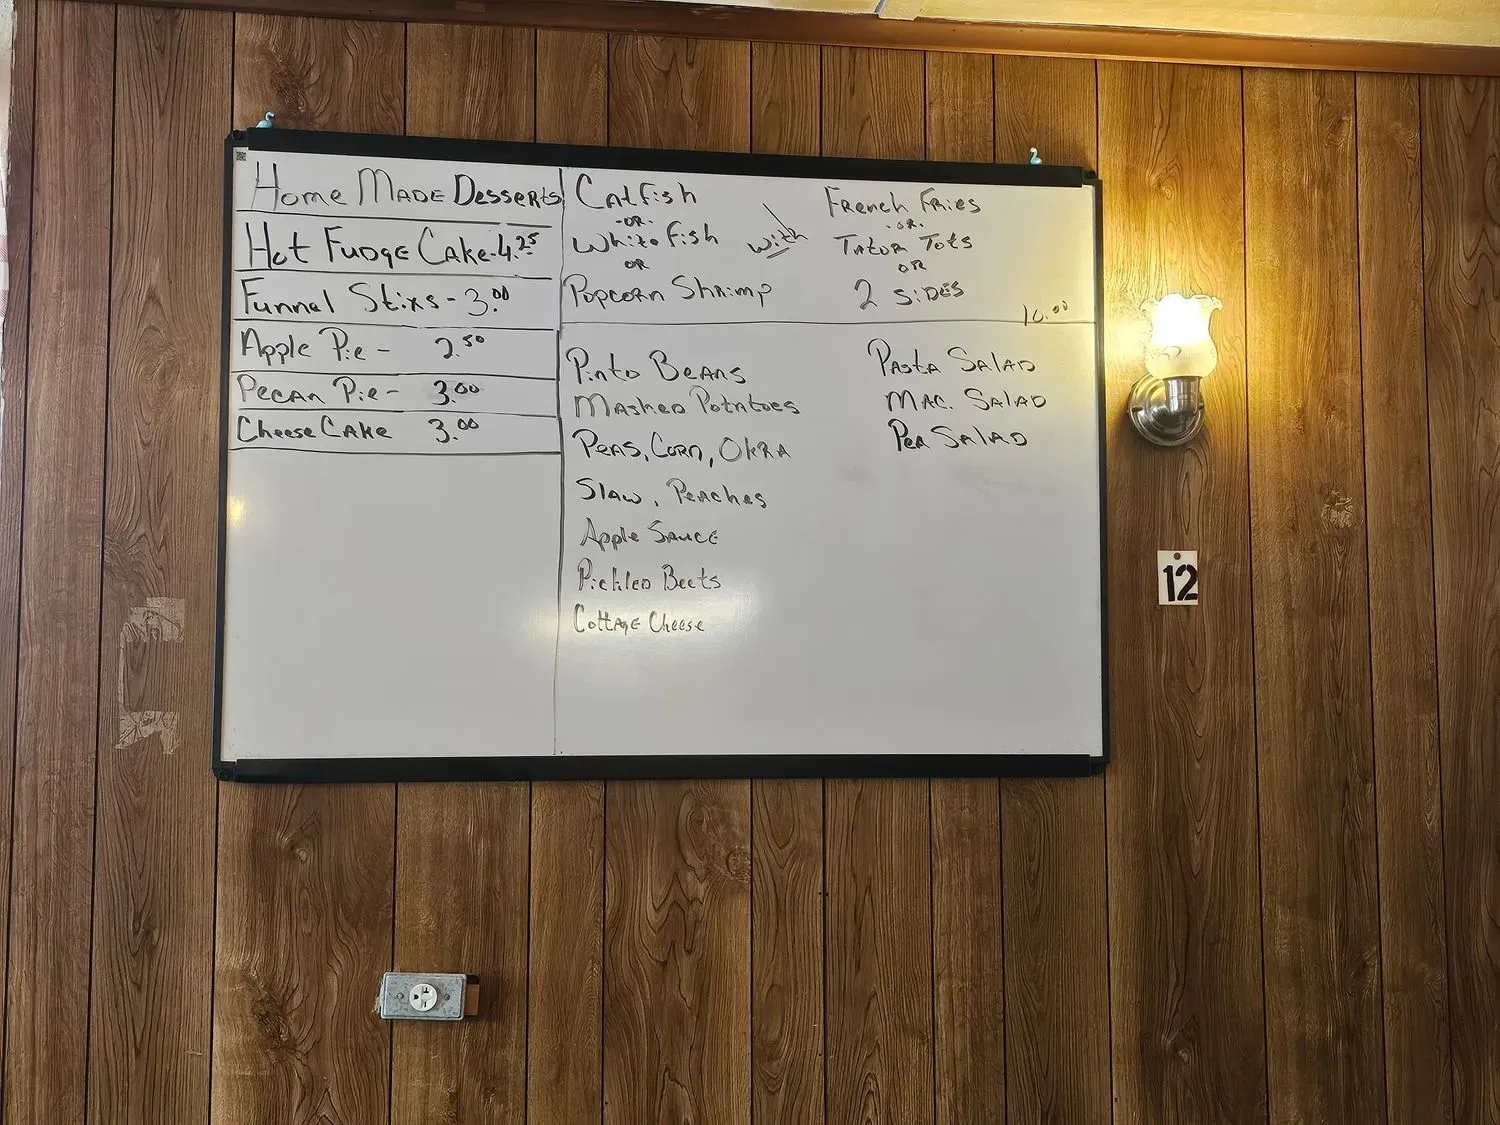 Home Made Desserts
Hot Fudge Cake - 4.25
Funnel Stixs - 3.00
Apple Pie - 2.50
Pecan Pie - 3.00
Cheese Cake 3.00
Catfish
-OR-
White fish
OR
Popcorn Shrimp
with
French Fries
-OR-
Tator Tots
OR
2 Sides
10.00
Pinto Beans
Mashed Potatoes
Peas, Corn, Okra
Slaw, Peaches
Apple Sauce
Pickled Beets
Cottage Cheese
Pasta Salad
Mac. Salad
Pea Salad
12